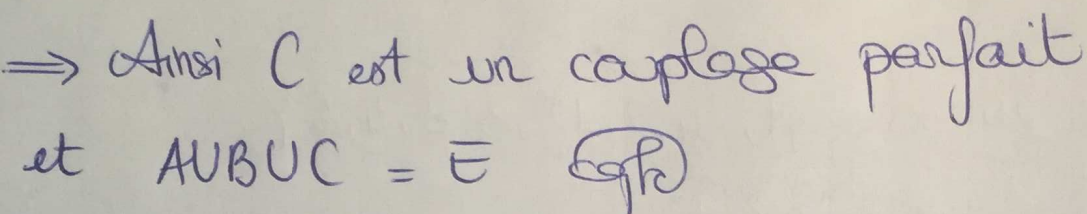 ⇒ Ainsi C est un couplage parfait
et AUBUC = E cqfd